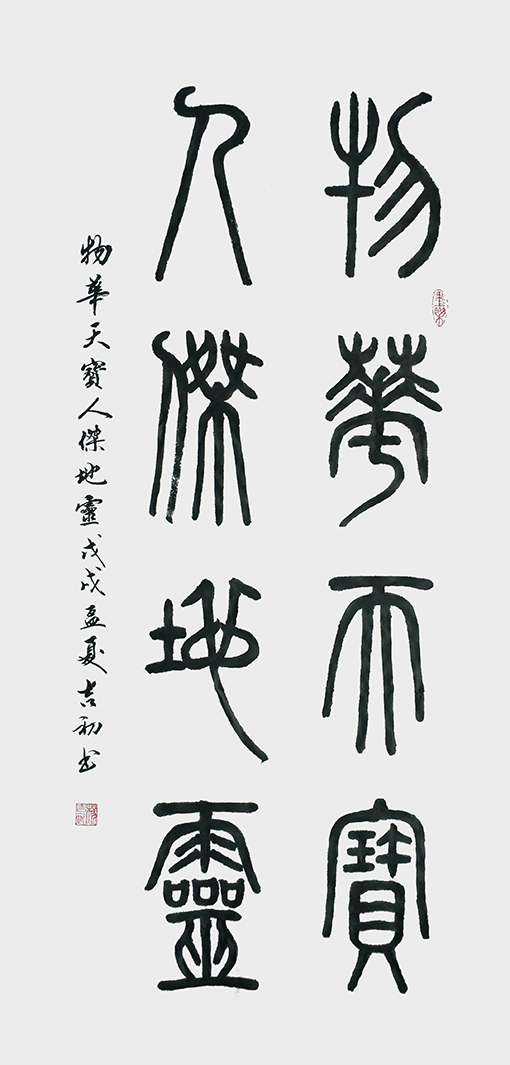 物華天寶
人傑地靈
物華天寶人傑地靈戊戌孟夏吉初书